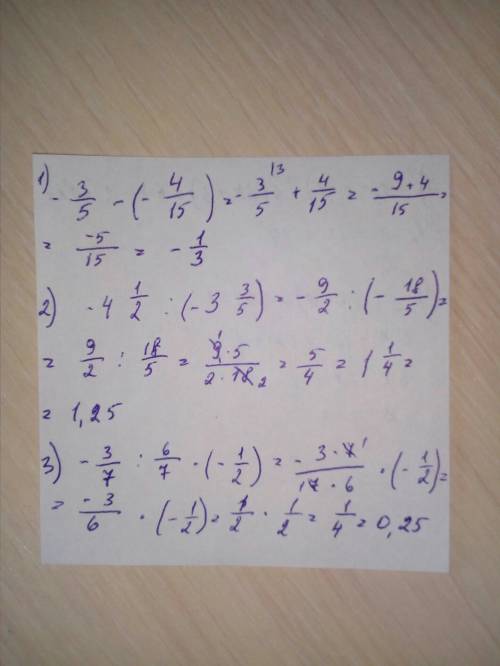 1) -3/5 - (-4/15) = -3/5^{13} + 4/15 = (-9+4)/15 =
= -5/15 = -1/3
2) -4 1/2 : (-3 3/5) = -9/2 : (-18/5) =
= 9/2 : 18/5 = (9^1·5)/(2·18_2) = 5/4 = 1 1/4 =
= 1,25
3) -3/7 : 6/7 · (-1/2) = (-3·7^1)/(17·6) · (-1/2) =
= -3/6 · (-1/2) = 1/2 · 1/2 = 1/4 = 0,25